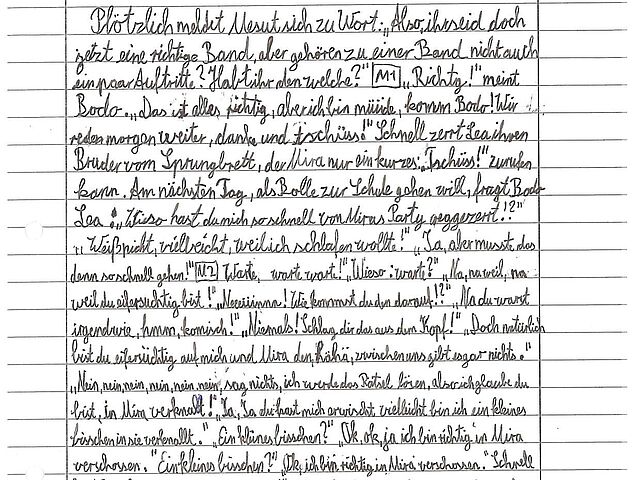 Plötzlich meldet Mesut sich zu Wort: „Also, ihr seid doch
jetzt eine richtige Band, aber gehören zu einer Band nicht auch
ein paar Auftritte? Habt ihr denn welche?" M1 „Richtig!" meint
Bodo. „Das ist alles richtig, aber ich bin müüde, komm Bodo! Wir
reden morgen weiter, danke und tschüss!" Schnell zerrt Lea ihren
Bruder vom Sprungbrett, der Mira nur ein kurzes „Tschüss!" zurufen
kann. Am nächsten Tag, als Bolle zur Schule gehen will, fragt Bodo
Lea: „Wieso hast du mich so schnell von Miras Party weggezerrt!?"
„Weiß nicht, vielleicht, weil ich schlafen wollte!" „Ja, aber musste das
denn so schnell gehen!" M2 „Warte, warte, wart!" „Wieso: warte?" „Na, na weil, na
weil du eifersüchtig bist!" „Neeeiiinnn! Wie kommst du den darauf!?" „Na du warst
irgendwie, hmm, komisch!" „Niemals! Schlag dir das aus dem Kopf!" „Doch natürlich
bist du eifersüchtig auf mich und Mira den, hähä, zwischen uns gibt es gar nichts."
„Nein, nein, nein, nein, nein, nein, sag nichts, ich werde das Rätsel lösen, also ich glaube du
bist, in Mira verknallt!" „Ja, Ja du hast mich erwischt vielleicht bin ich ein kleines
bisschen in sie verknallt." „Ein kleines bisschen?" „Ok, ok, ja ich bin richtig in Mira
verschossen." „Ein kleines bisschen?" „Ok, ich bin richtig in Mira verschossen." Schnell